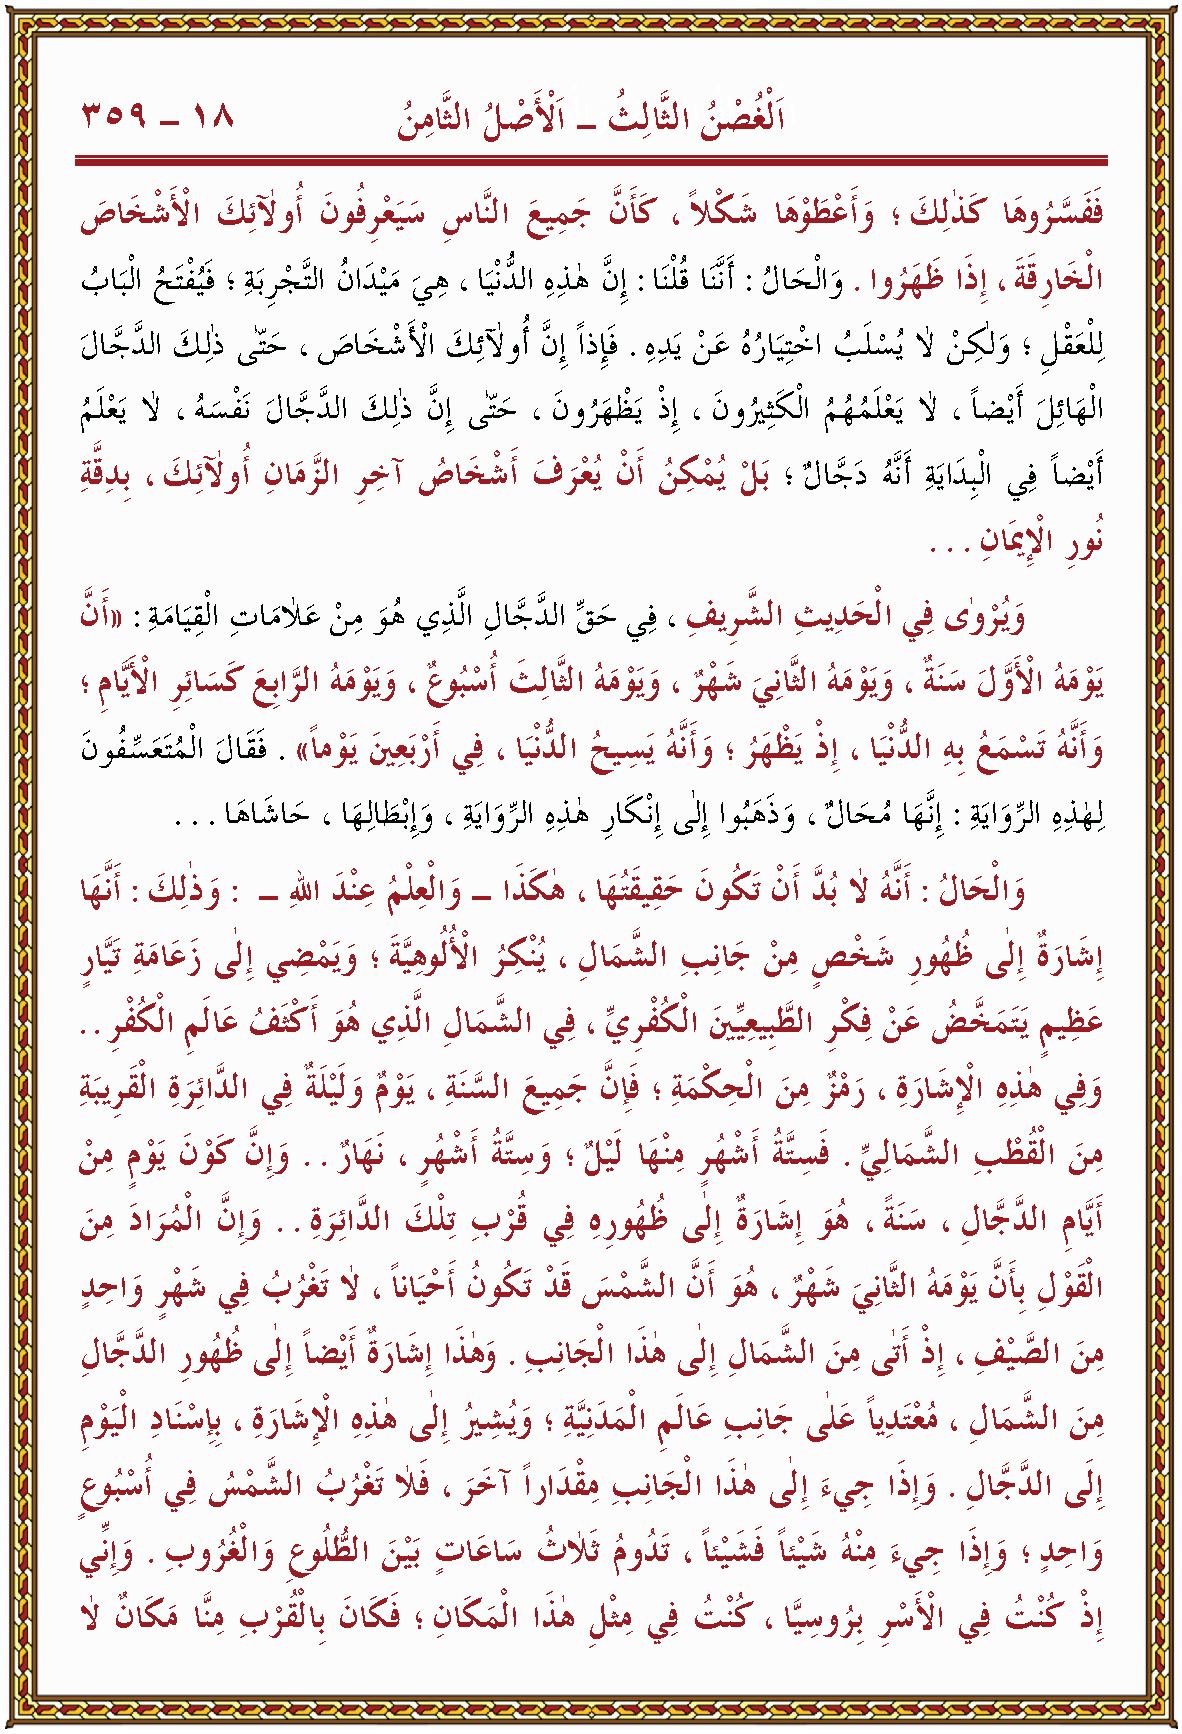 اَلْغُصْنُ الثَّالِثُ ـ اَلْأَصْلُ الثَّامِنُ ١٨ ـ ٣٥٩
فَفَسَّرُوهَا كَذٰلِكَ ؛ وَأَعْطَوْهَا شَكْلاً ، كَأَنَّ جَمِيعَ النَّاسِ سَيَعْرِفُونَ أُولٰۤئِكَ الْأَشْخَاصَ
الْخَارِقَةَ ، إِذَا ظَهَرُوا . وَالْحَالُ : أَنَّنَا قُلْنَا : إِنَّ هٰذِهِ الدُّنْيَا ، هِيَ مَيْدَانُ التَّجْرِبَةِ ؛ فَيُفْتَحُ الْبَابُ
لِلْعَقْلِ ؛ وَلٰكِنْ لاٰ يُسْلَبُ اخْتِيَارُهُ عَنْ يَدِهِ . فَإِذاً إِنَّ أُولٰۤئِكَ الْأَشْخَاصَ ، حَتّٰى ذٰلِكَ الدَّجَّالَ
الْهَائِلَ أَيْضاً ، لاٰ يَعْلَمُهُمُ الْكَثِيرُونَ ، إِذْ يَظْهَرُونَ ، حَتّٰى إِنَّ ذٰلِكَ الدَّجَّالَ نَفْسَهُ ، لاٰ يَعْلَمُ
أَيْضاً فِي الْبِدَايَةِ أَنَّهُ دَجَّالٌ ؛ بَلْ يُمْكِنُ أَنْ يُعْرَفَ أَشْخَاصُ آخِرِ الزَّمَانِ أُولٰۤئِكَ ، بِدِقَّةِ
نُورِ الْإِيمَانِ . . .
وَيُرْوٰى فِي الْحَدِيثِ الشَّرِيفِ ، فِي حَقِّ الدَّجَّالِ الَّذِي هُوَ مِنْ عَلاٰمَاتِ الْقِيَامَةِ : «أَنَّ
يَوْمَهُ الْأَوَّلَ سَنَةٌ ، وَيَوْمَهُ الثَّانِيَ شَهْرٌ ، وَيَوْمَهُ الثَّالِثَ أُسْبُوعٌ ، وَيَوْمَهُ الرَّابِعَ كَسَائِرِ الْأَيَّامِ ؛
وَأَنَّهُ تَسْمَعُ بِهِ الدُّنْيَا ، إِذْ يَظْهَرُ ؛ وَأَنَّهُ يَسِيحُ الدُّنْيَا ، فِي أَرْبَعِينَ يَوْماً» . فَقَالَ الْمُتَعَسِّفُونَ
لِهٰذِهِ الرِّوَايَةِ : إِنَّهَا مُحَالٌ ، وَذَهَبُوا إِلٰى إِنْكَارِ هٰذِهِ الرِّوَايَةِ ، وَإِبْطَالِهَا ، حَاشَاهَا . . .
وَالْحَالُ : أَنَّهُ لاٰ بُدَّ أَنْ تَكُونَ حَقِيقَتُهَا ، هٰكَذَا ـ وَالْعِلْمُ عِنْدَ اللهِ ـ : وَذٰلِكَ : أَنَّهَا
إِشَارَةٌ إِلٰى ظُهُورِ شَخْصٍ مِنْ جَانِبِ الشَّمَالِ ، يُنْكِرُ الْأُلُوهِيَّةَ ؛ وَيَمْضِي إِلٰى زَعَامَةِ تَيَّارٍ
عَظِيمٍ يَتَمَخَّضُ عَنْ فِكْرِ الطَّبِيعِيِّينَ الْكُفْرِيِّ ، فِي الشَّمَالِ الَّذِي هُوَ أَكْثَفُ عَالَمِ الْكُفْرِ . .
وَفِي هٰذِهِ الْإِشَارَةِ ، رَمْزٌ مِنَ الْحِكْمَةِ ؛ فَإِنَّ جَمِيعَ السَّنَةِ ، يَوْمٌ وَلَيْلَةٌ فِي الدَّائِرَةِ الْقَرِيبَةِ
مِنَ الْقُطْبِ الشَّمَالِيِّ . فَسِتَّةُ أَشْهُرٍ مِنْهَا لَيْلٌ ؛ وَسِتَّةُ أَشْهُرٍ ، نَهَارٌ . . وَإِنَّ كَوْنَ يَوْمٍ مِنْ
أَيَّامِ الدَّجَّالِ ، سَنَةً ، هُوَ إِشَارَةٌ إِلٰى ظُهُورِهِ فِي قُرْبِ تِلْكَ الدَّائِرَةِ . . وَإِنَّ الْمُرَادَ مِنَ
الْقَوْلِ بِأَنَّ يَوْمَهُ الثَّانِيَ شَهْرٌ ، هُوَ أَنَّ الشَّمْسَ قَدْ تَكُونُ أَحْيَاناً ، لاٰ تَغْرُبُ فِي شَهْرٍ وَاحِدٍ
مِنَ الصَّيْفِ ، إِذْ أَتٰى مِنَ الشَّمَالِ إِلٰى هٰذَا الْجَانِبِ . وَهٰذَا إِشَارَةٌ أَيْضاً إِلٰى ظُهُورِ الدَّجَّالِ
مِنَ الشَّمَالِ ، مُعْتَدِياً عَلٰى جَانِبِ عَالَمِ الْمَدَنِيَّةِ ؛ وَيُشِيرُ إِلٰى هٰذِهِ الْإِشَارَةِ ، بِإِسْنَادِ الْيَوْمِ
إِلَى الدَّجَّالِ . وَإِذَا جِيءَ إِلٰى هٰذَا الْجَانِبِ مِقْدَاراً آخَرَ ، فَلاٰ تَغْرُبُ الشَّمْسُ فِي أُسْبُوعٍ
وَاحِدٍ ؛ وَإِذَا جِيءَ مِنْهُ شَيْئاً فَشَيْئاً ، تَدُومُ ثَلاٰثُ سَاعَاتٍ بَيْنَ الطُّلُوعِ وَالْغُرُوبِ . وَإِنِّي
إِذْ كُنْتُ فِي الْأَسْرِ بِرُوسِيَّا ، كُنْتُ فِي مِثْلِ هٰذَا الْمَكَانِ ؛ فَكَانَ بِالْقُرْبِ مِنَّا مَكَانٌ لاٰ